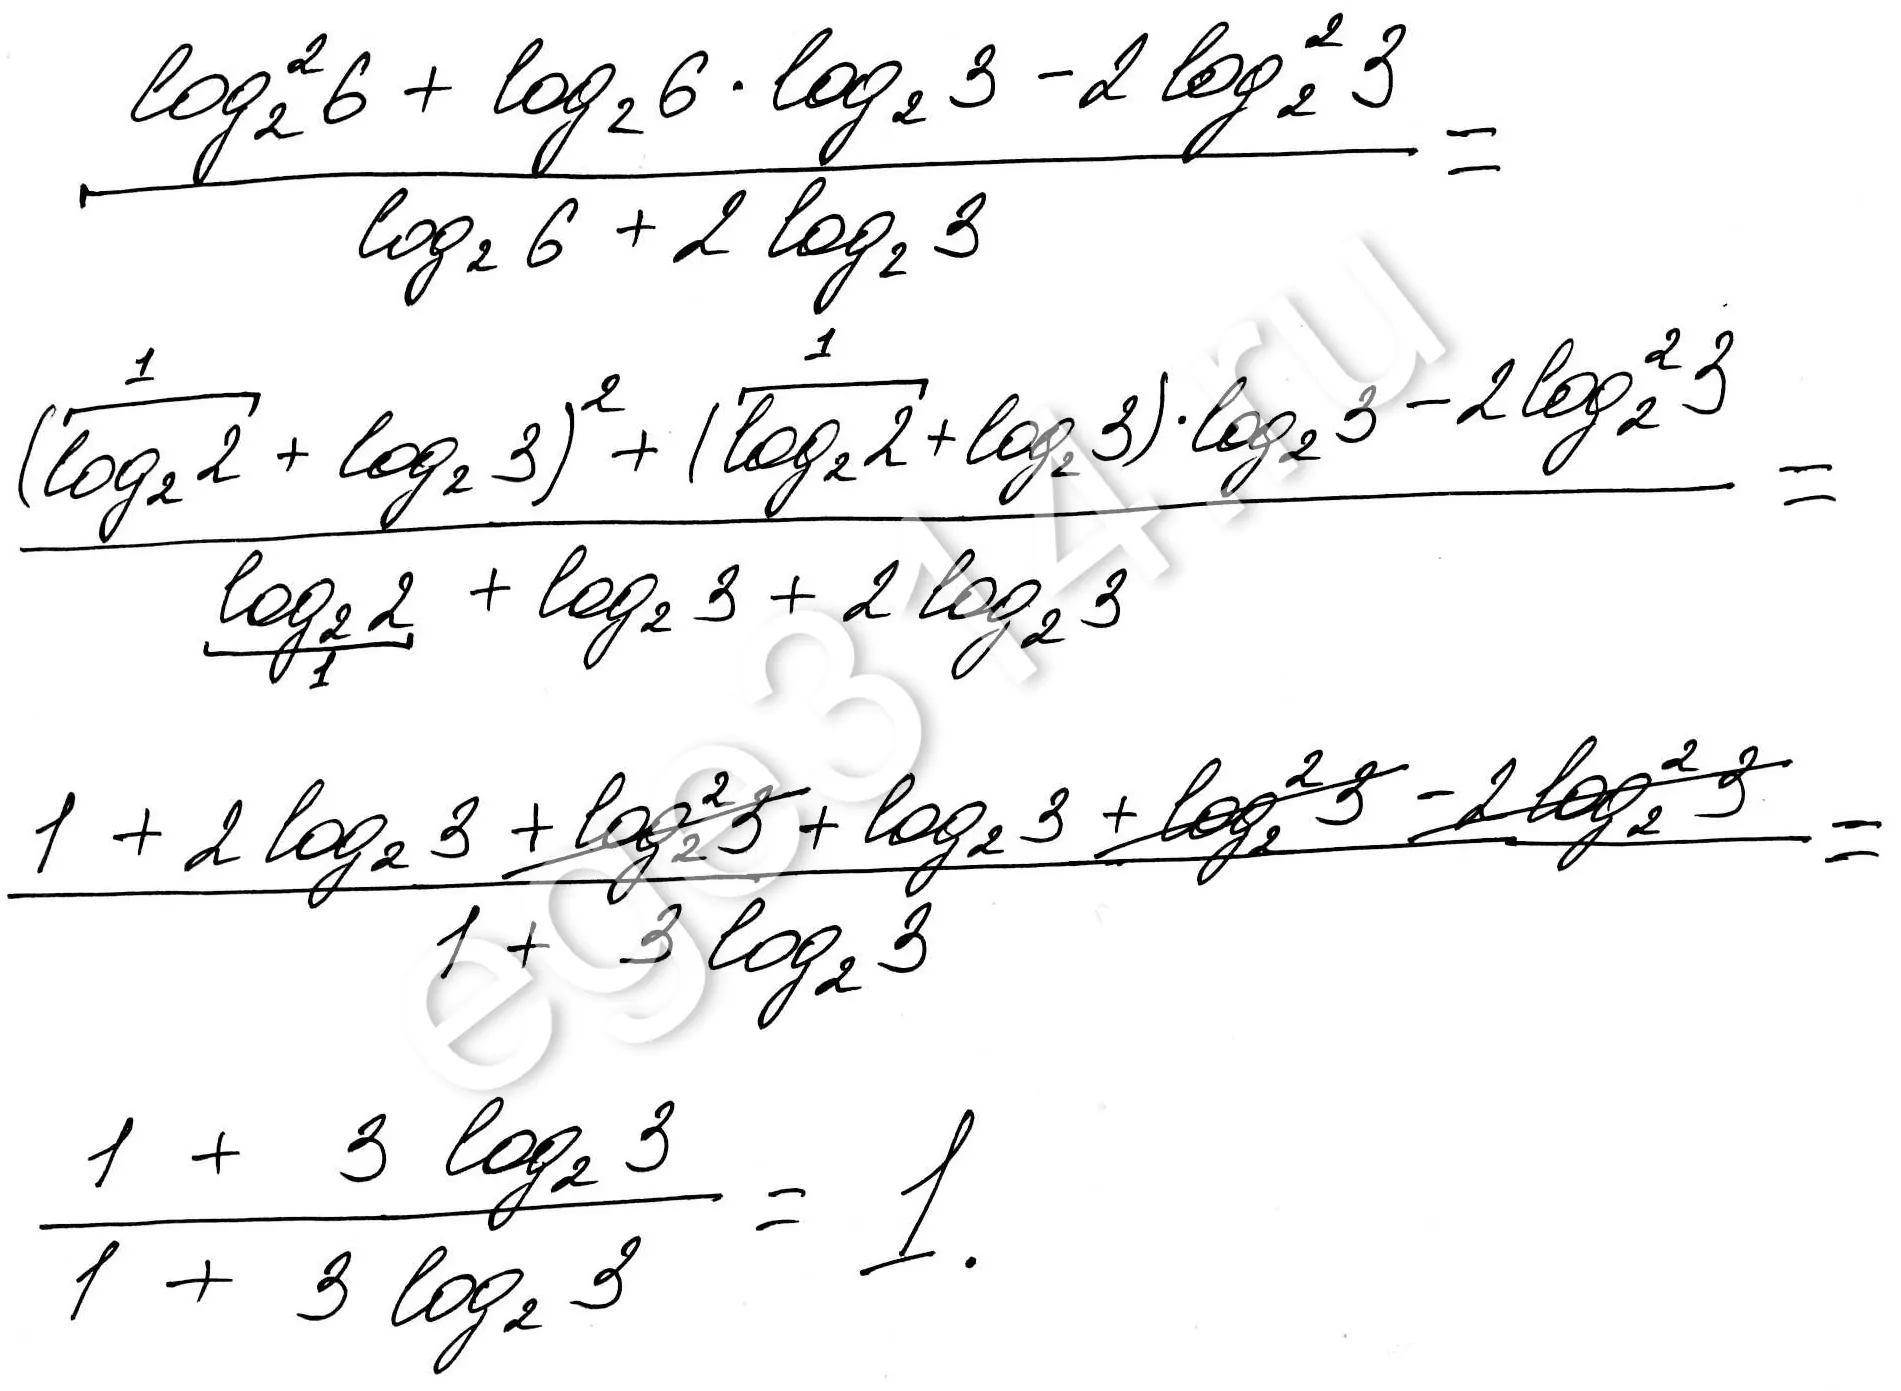 log₂²6 + log₂6 · log₂3 − 2 log₂²3 =
log₂6 + 2 log₂3
1 1
(log₂2 + log₂3)² + (log₂2 + log₂3) · log₂3 − 2 log₂²3 =
log₂2 + log₂3 + 2 log₂3
1
1 + 2 log₂3 + log₂²3 + log₂3 + log₂²3 − 2 log₂²3 =
1 + 3 log₂3
1 + 3 log₂3 = 1.
1 + 3 log₂3
ege314.ru